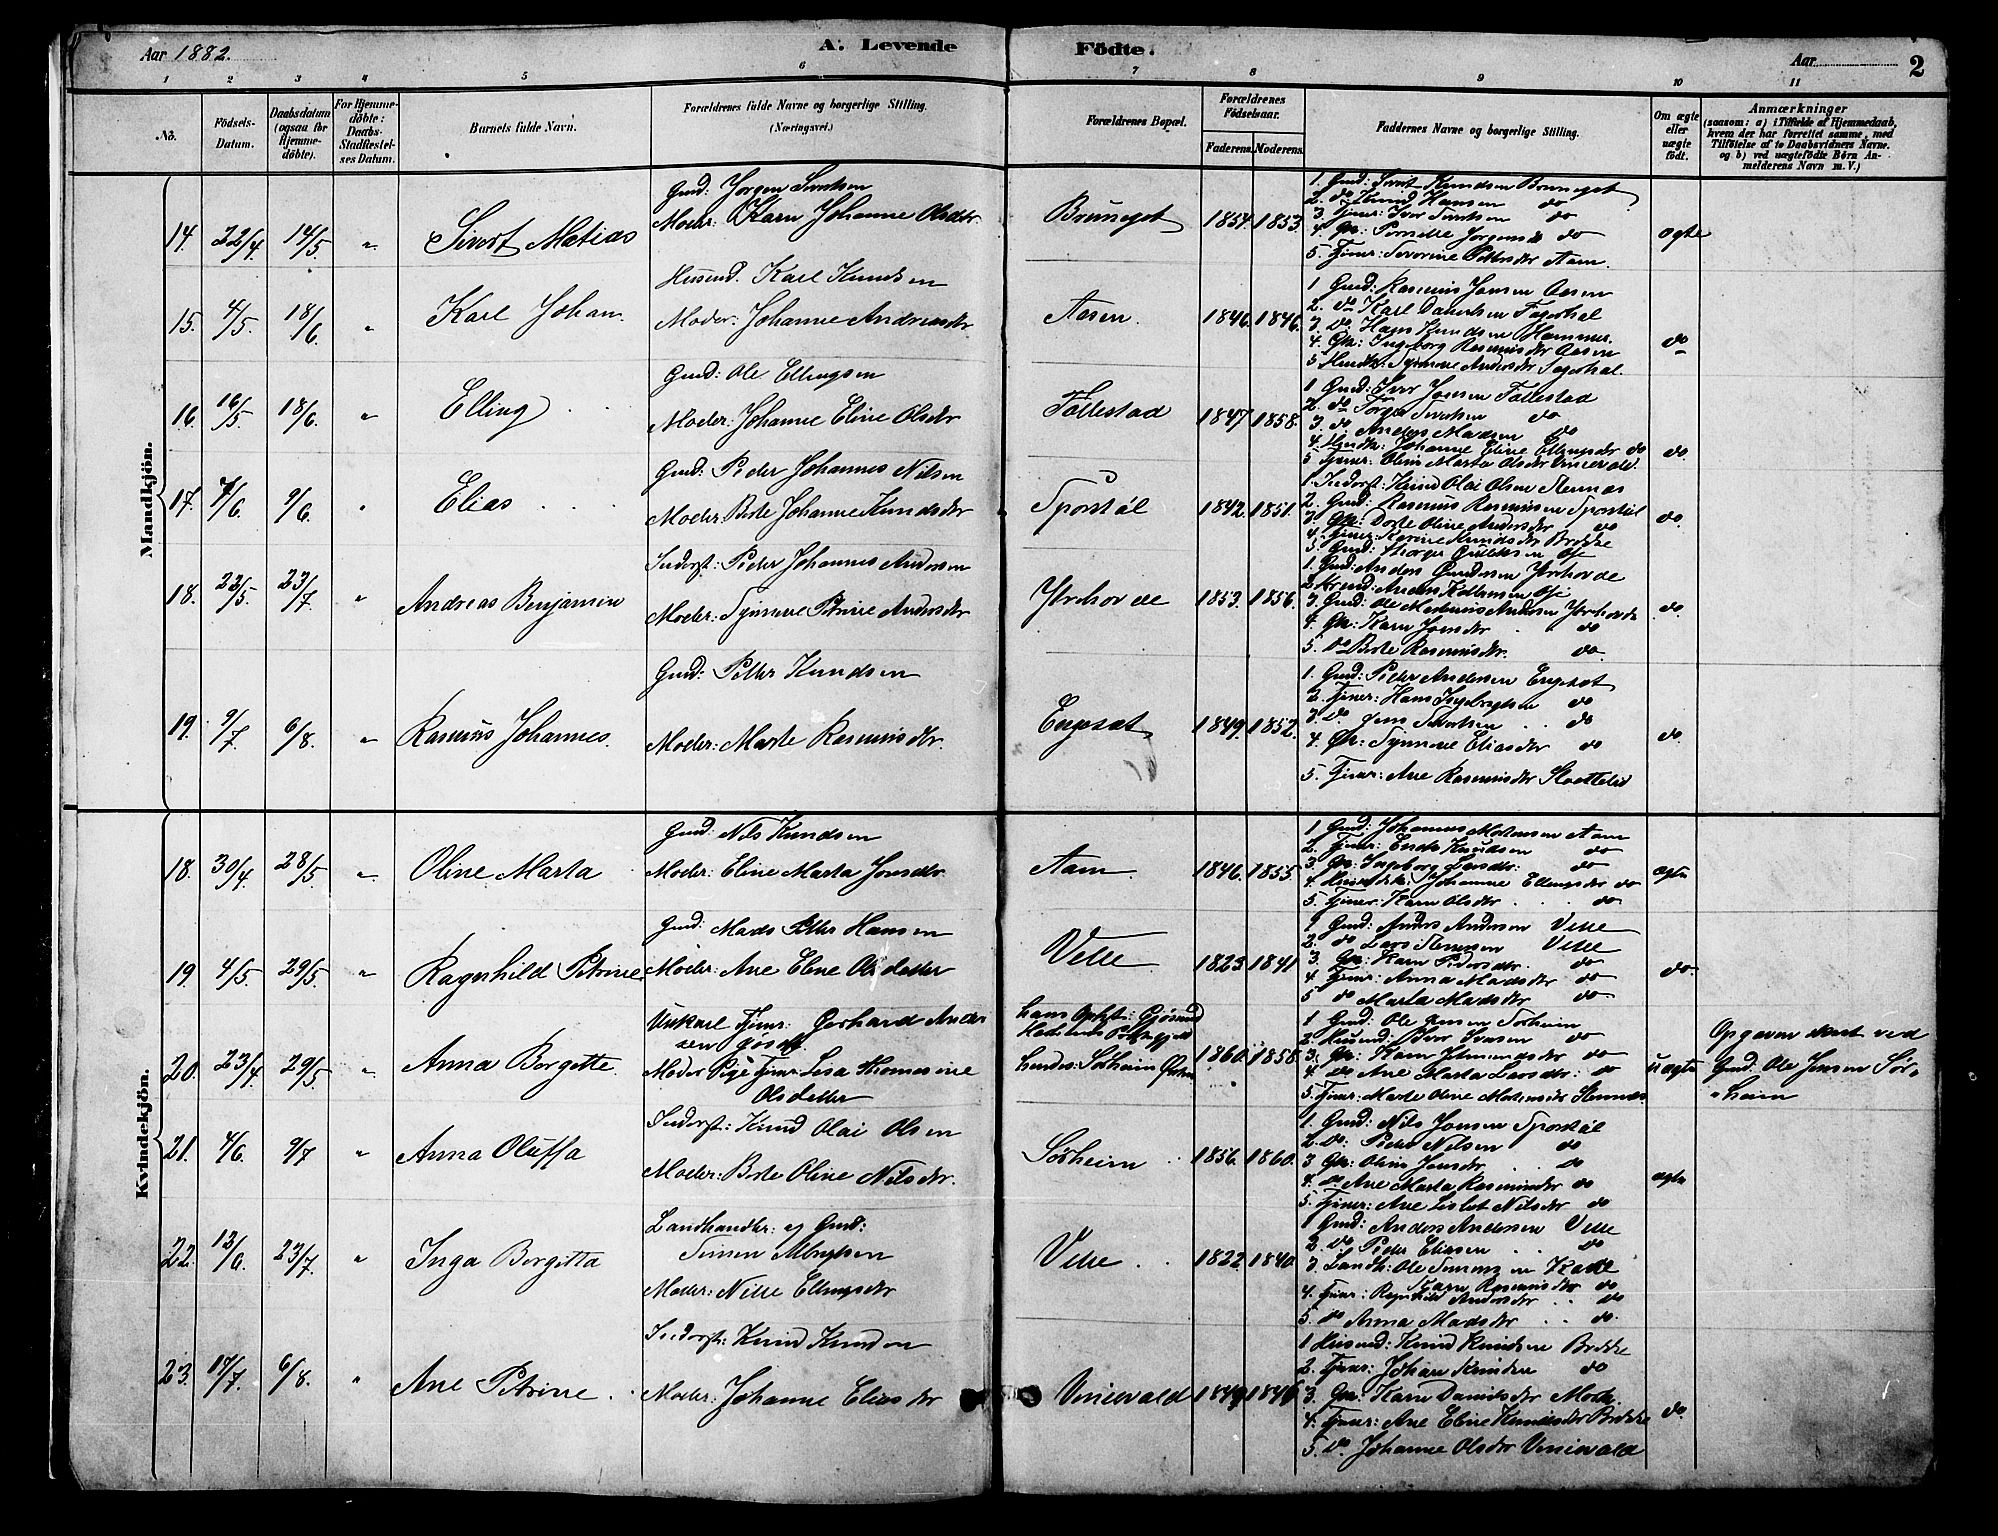 Aar 1882.
A. Levende Fødte.
Aar 2
1 2 3 4 5 6 7 8 9 10 11
No.
Fødsels-Datum.
Daabsdatum (ogsaa for Hjemmedøbte).
For Hjemmedøbte: Daabs-Stadfæstelses Datum.
Barnets fulde Navn.
Forældrenes fulde Navne og borgerlige Stilling. (Næringsvei.)
Forældrenes Bopæl.
Forældrenes Fødselsaar.
Faderens. Moderens.
Faddernes Navne og borgerlige Stilling.
Om ægte eller uægte født.
Anmærkninger
(saasom: a) i Tilfælde af Hjemmedaab, hvem der har forrettet samme, med Tilføielse af to Daabsvidners Navne, og b) ved uægtefødte Børn Anmelderens Navn m. V.)
Mandkjön.
14. 22/4 14/5 " Sivert Matias
Gmd: Jørgen Sivertsen
Moder: Karn Johanne Olsdtr
Bruneset 1854. 1853.
1. Gmd: Sivert Knudsen Bruneset
2. do Knud Hansen do
3. Tjener: Iver Sivertsen do
4. Gk: Pernille Jørgensdtr do
5. Tjener: Severine Pettersdtr Aam.
ægte
15. 4/5. 18/6. " Karl Johan.
Husmd. Karl Knudsen
Moder: Johanne Andreasdtr
Aasen. 1846. 1846.
1 Gmd: Rasmus Jonsen Aasen
2. do Karl Danielsen Fagerhol
3. do. Hans Knudsen Hammer.
4. Gk: Ingeborg Rasmusdtr Aasen
5 Husmk: Synneve Andersdtr Fagerhol.
do
16. 16/5. 18/6. " Elling
Gmd: Ole Ellingsen
Moder: Johanne Eline Olsdtr
Follestad 1847. 1858.
1 Gmd: Iver Jonsen Follestad
2. do Torger Sivertsen do
3. do. Anders Madsen do
4. Husmk: Johanne Eline Ellingsdtr do
5 Tjener: Oline Marta Olsdtr Vinievold.
do.
17. 7/6 9/6. " Elias
Gmd: Peder Johannes Nilsen
Moder: Berte Johanne Knudsdtr
Sporstøl 1842. 1851.
1. Inderst: Knud Olai Olsen Stennes
2. Gmd: Rasmus Rasmussen Sporstøl
3. Gk: Dorte Oline Andersdtr do
4. Tjener: Karine Knudsdtr Brekke
5. Gmd: Thorger Gulliksen Ose
do.
18. 23/5. 23/7 " Andreas Benjamin
Inderst: Peder Johannes Andersen
Moder: Synneve Petrine Andersdtr
Ytrehovde 1853. 1856.
1. Gmd: Anders Gundersen Ytrehovde
3. Gmd: Ole Martinus Andersen Ytrehovde
4. Gk: Karn Jonsdtr do
5. do Berte Rasmusdtr. do.
do.
19. 9/7 6/8. " Rasmus Johannes.
Gmd: Petter Knudsen
Moder: Marte Rasmusdtr.
Engeset 1849. 1852.
1. Gmd: Peder Andersen Engeset
2. Tjener: Hans Ingebrigtsen do
3. do Jens Sivertsen do
4. Gk: Synneve Eliasdtr do
5. Tjener: Ane Rasmusdtr Slettelid
do
Kvindekjön.
18. 30/4 28/5. " Oline Marta
Gmd: Nils Knudsen
Moder: Eline Marta Jonsdtr
Aam 1846. 1855.
1 Gmd: Johannes Mortensen Aam
2. Tjener: Endre Knudsen do
3. Gk: Ingeborg Larsdtr. do
4. Husmk: Johanne Ellingsdtr do
5. Tjener: Karn Olsdtr do
ægte
19 4/5. 29/5. " Ragnhild Petrine
Gmd: Mads Petter Hansen
Moder: Ane Eline Olsdatter
Velle 1823. 1841
1 Gmd: Anders Andersen Velle
2. do Lars Stenersen Velle
3. Gk: Karn Pedersdtr. do
4. Tjener: Anna Madsdtr do
5 do Marta Madsdtr do
do.
20. 23/4 29/5. " Anna Bergitte.
Unkarl Tjener: Gerhard Andersen Gjøsdt
Moder Pige Tjener Lesa Thomasine Olsdatter
hans Opht: Gjøsund
hendes: Sørheim Ørsten
1860. 1858.
1 Gmd: Ole Jensen Sørheim
2. Husmd: Iver Iversen do
3. Gk: Karn Amundsdtr do
4. do Ane Marta Larsdtr: do
5. Tjener: Marte Oline Mortensdtr Stennes
uægte
Opgaven skeet ved Gmd: Ole Jensen Sørheim
21. 4/6. 9/7 " Anna Oluffa
Inderst: Knud Olai Olsen
Moder: Berte Oline Nilsdtr.
Sørheim 1856. 1860.
1. Gmd: Nils Jonsen Sporstøl
2. do: Peder Nilsen do
3 Gk: Oline Jonsdtr. do
4. do Ane Marta Rasmusdtr do
5. Tjener: Ane Lislot Nilsdtr do
ægte
22. 13/6. 23/7. " Inga Bergitta
Landhandler og Gmd: Simen Albrigtsen
Moder: Nille Ellingsdtr
Velle 1822. 1840
1 Gmd: Anders Andersen Velle
2. do. Peder Eliasen do
4. Tjener: Ragnhild Andersdtr do
5. do Anna Madsdtr do.
23. 17/7 6/8. " Ane Petrine
Inderst: Knud Knudsen
Moder: Johanne Eliasdtr
Vinievold 1849 1846.
1 Husmd: Knud Knudsen Brekke
2. Tjener: Johan Knudsen do
3. Gk: Karn Danielsdtr Mork.
4. Tjener: Ane Eline Knudsdtr Brekke
5. do. Johanne Olsdtr Vinievold
do.